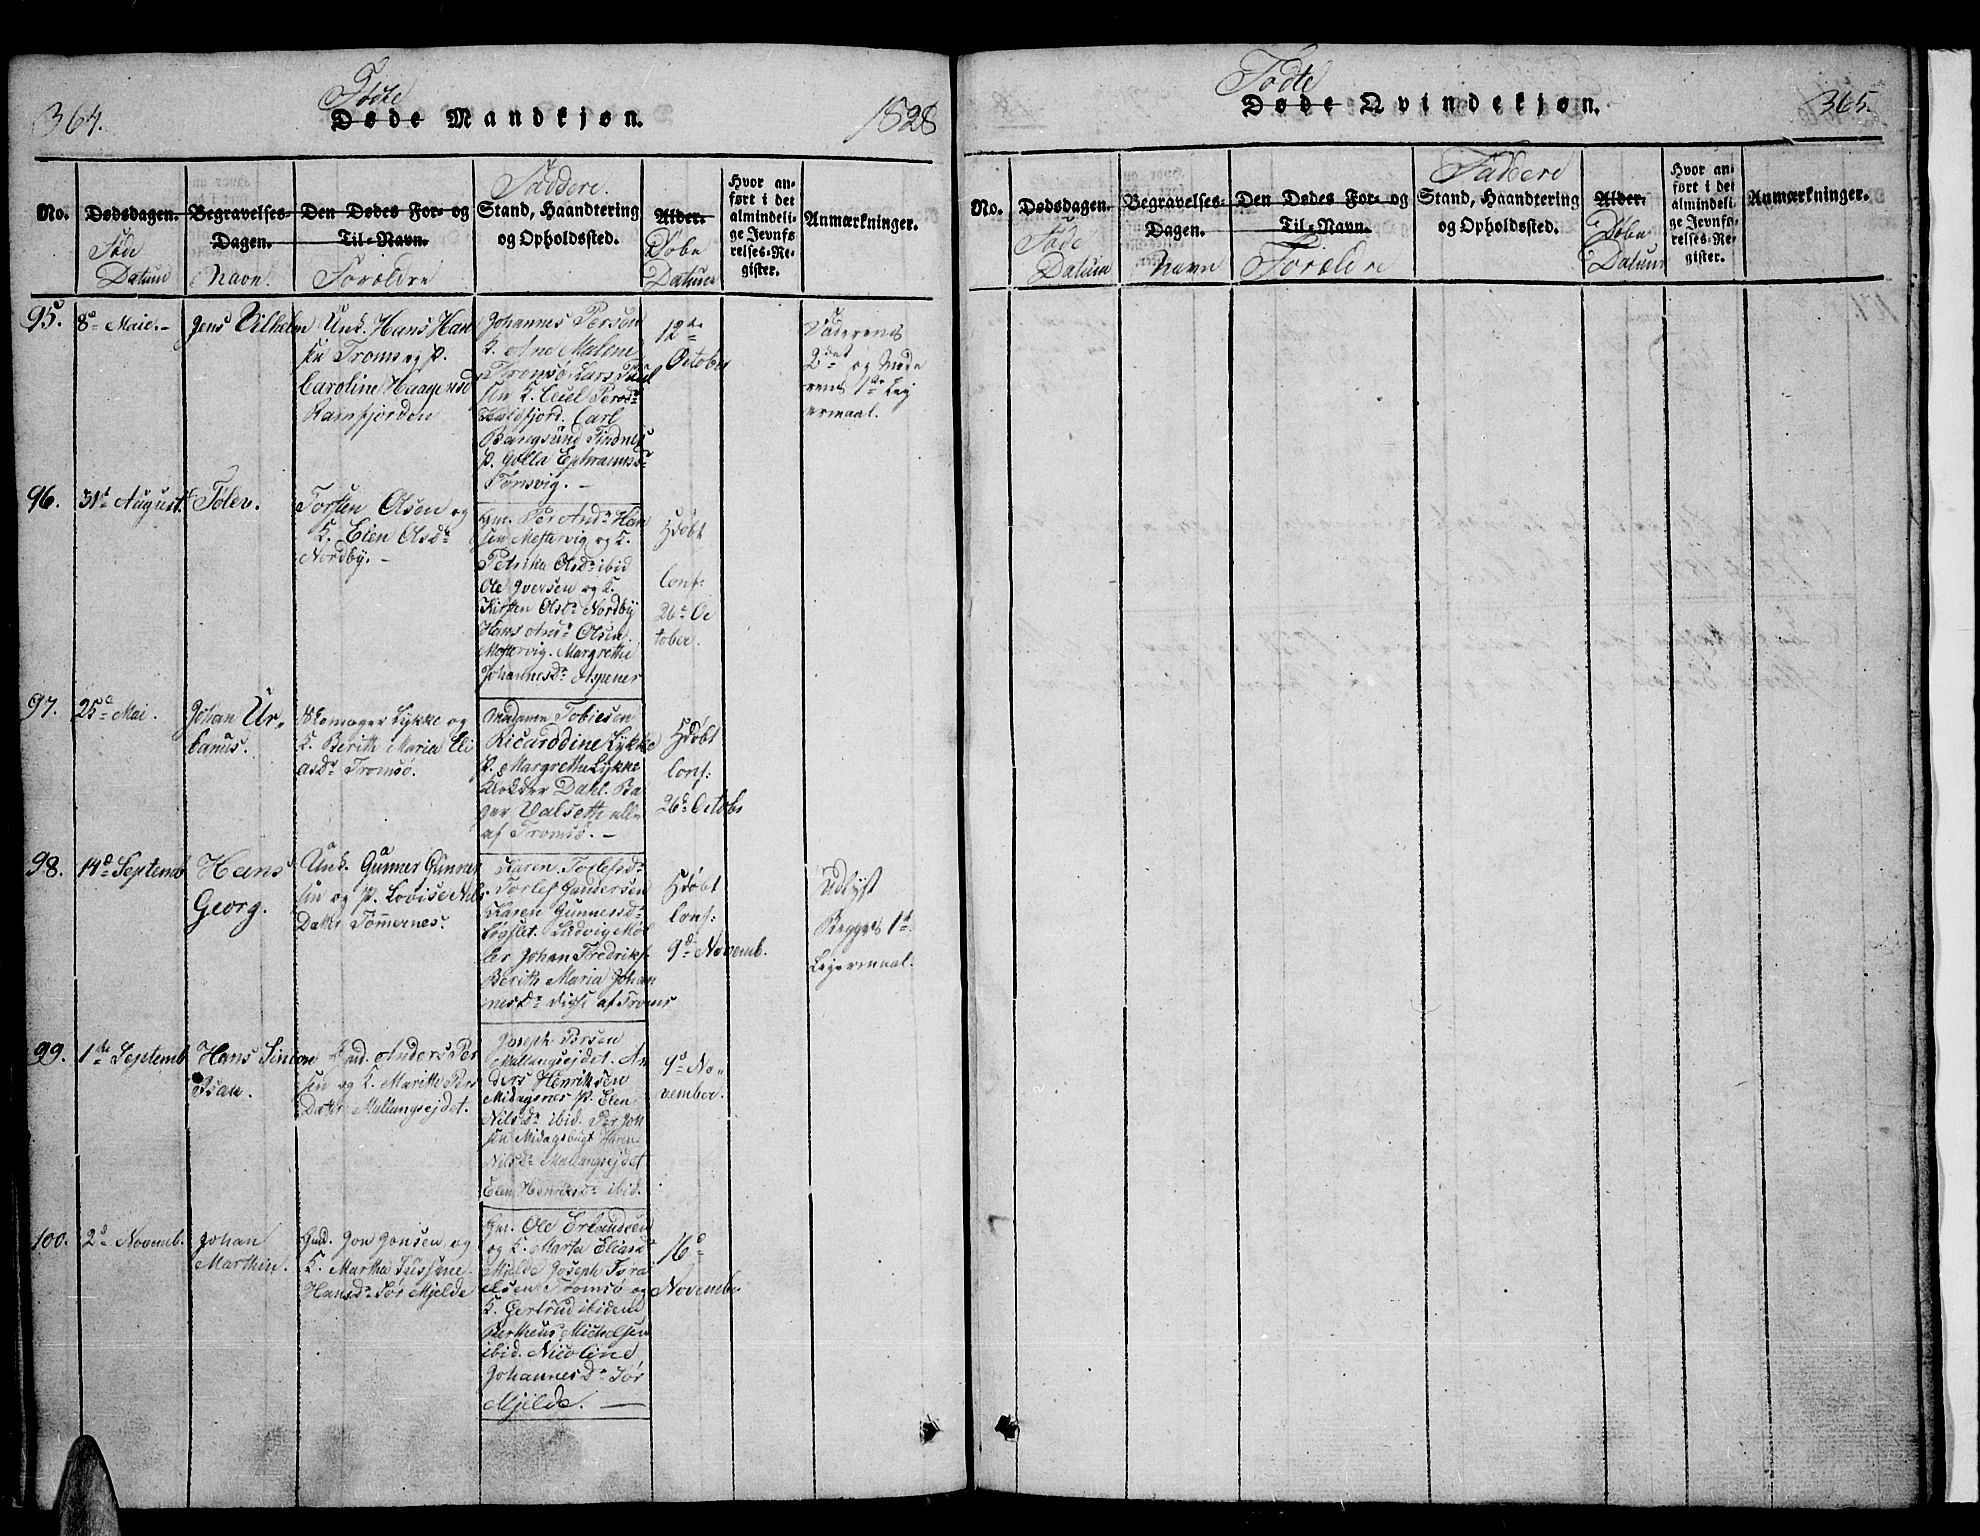 364.
Fødte
Døde Mandkjøn.
1828
No.
Dødsdagen.
Føde
Datum
Begravelses-
Dagen.
Navn.
Den Dødes For- og
Til-Navn.
Forældre
Faddere.
Stand, Haandtering
og Opholdssted.
Alder.
Døbe
Datum
Hvor an-
ført i det
almindeli-
ge Jevnfø-
relses-Re-
gister.
Anmærkninger.
95.
8de Maie.-
Jens Vilhelm
Unk. Hans Han
sen Tromsø og P.
Caroline Haagensd
Ramfjorden
Johannes Persøn
K. Ane Malene
Tromsø. Lars Paul
sen K. Ceiel Persd
Kaldfjord. Carl
Bangsund Tindnes
P. Golla Ephraimsd
Tonsvig. -
12te
October
Faderens
2det og Mode
rens 1ste Lej
ermaal.
96.
31te August
Tølev.
Torsten Olsen og
K. Elen Olsdr
Nordby. -
Gm. Per Ands Han
sen Mestervig og K.
Petrika Olsdr ibid
Ole Iversen og K.
Kirsten Olsdr Nordby
Hans Ands Olsen
Mestervig. Margrethe
Johannesdr Aspenes
Hdøbt
Conf:
26de Oc
tober.
97.
25de Mai.
Johan Ur-
banus.
Skomager Lykke og
K. Berith Maria Eli
asdr Tromsø.
Madame Tobiesen
Ricarddine Lykke
P. Margrethe Lykke
Klokker Dahl. Ba
ger Valseth alle
af Tromsø. -
Hdøbt
Conf:
26de Octobr
98.
14de Septemb
Hans
Georg.
Unk. Gunner Gunner
sen og P. Lovise Nils
Datter Tømmernes.
Karen Torlefsdr
Torlef Gundersen
Karen Gunnersdr
Løgslet. Ludvig Møl
ler Johan Fredriks.
Berith Maria Johan
nesdr digse af Tromsø
Hdøbt
Conf:
9de Novemb.
Udlyst
Begges 1ste
Lejermaal.
99.
1ste Septemb
Hans Simon
Isak.
Gmd. Anders Per
sen og K. Marithe Pers
Datter Mallangsejdet.
Joseph Persen
Mallangsejdet. An
ders Henriksen
Midagsnes P. Elen
Nilsdr ibid. Per Joh
sen Midagsbugt Karen
Nilsdr Mallangsejdet
Elen Henriksdr ibid.
9de No-
vember.
100.
2de Novemb.
Johan
Marthin.
Gmd. Jon Jonsen og
K. Martha Sussane
Hansdr Sør Mjelde
Gm. Ole Erlandsen
og K. Marta Eliasd
Mjelde Joseph Isra
elsen Tromsø og
K. Gertrud ibidem
Bertheus Michelsen
ibid. Nicoline
Johannesdr Sør
Mjelde. -
16de
Novembr
365.
Fødte
Døde Qvindekjøn.
No.
Dødsdagen.
Føde
Datum
Begravelses-
Dagen.
Navn
Den Dødes For- og
Til-Navn.
Forældre
Faddere
Stand, Haandtering
og Opholdssted.
Alder.
Døbe
Datum
Hvor an-
ført i det
almindeli-
ge Jevnfø-
relses-Re-
gister.
Anmærkninger.